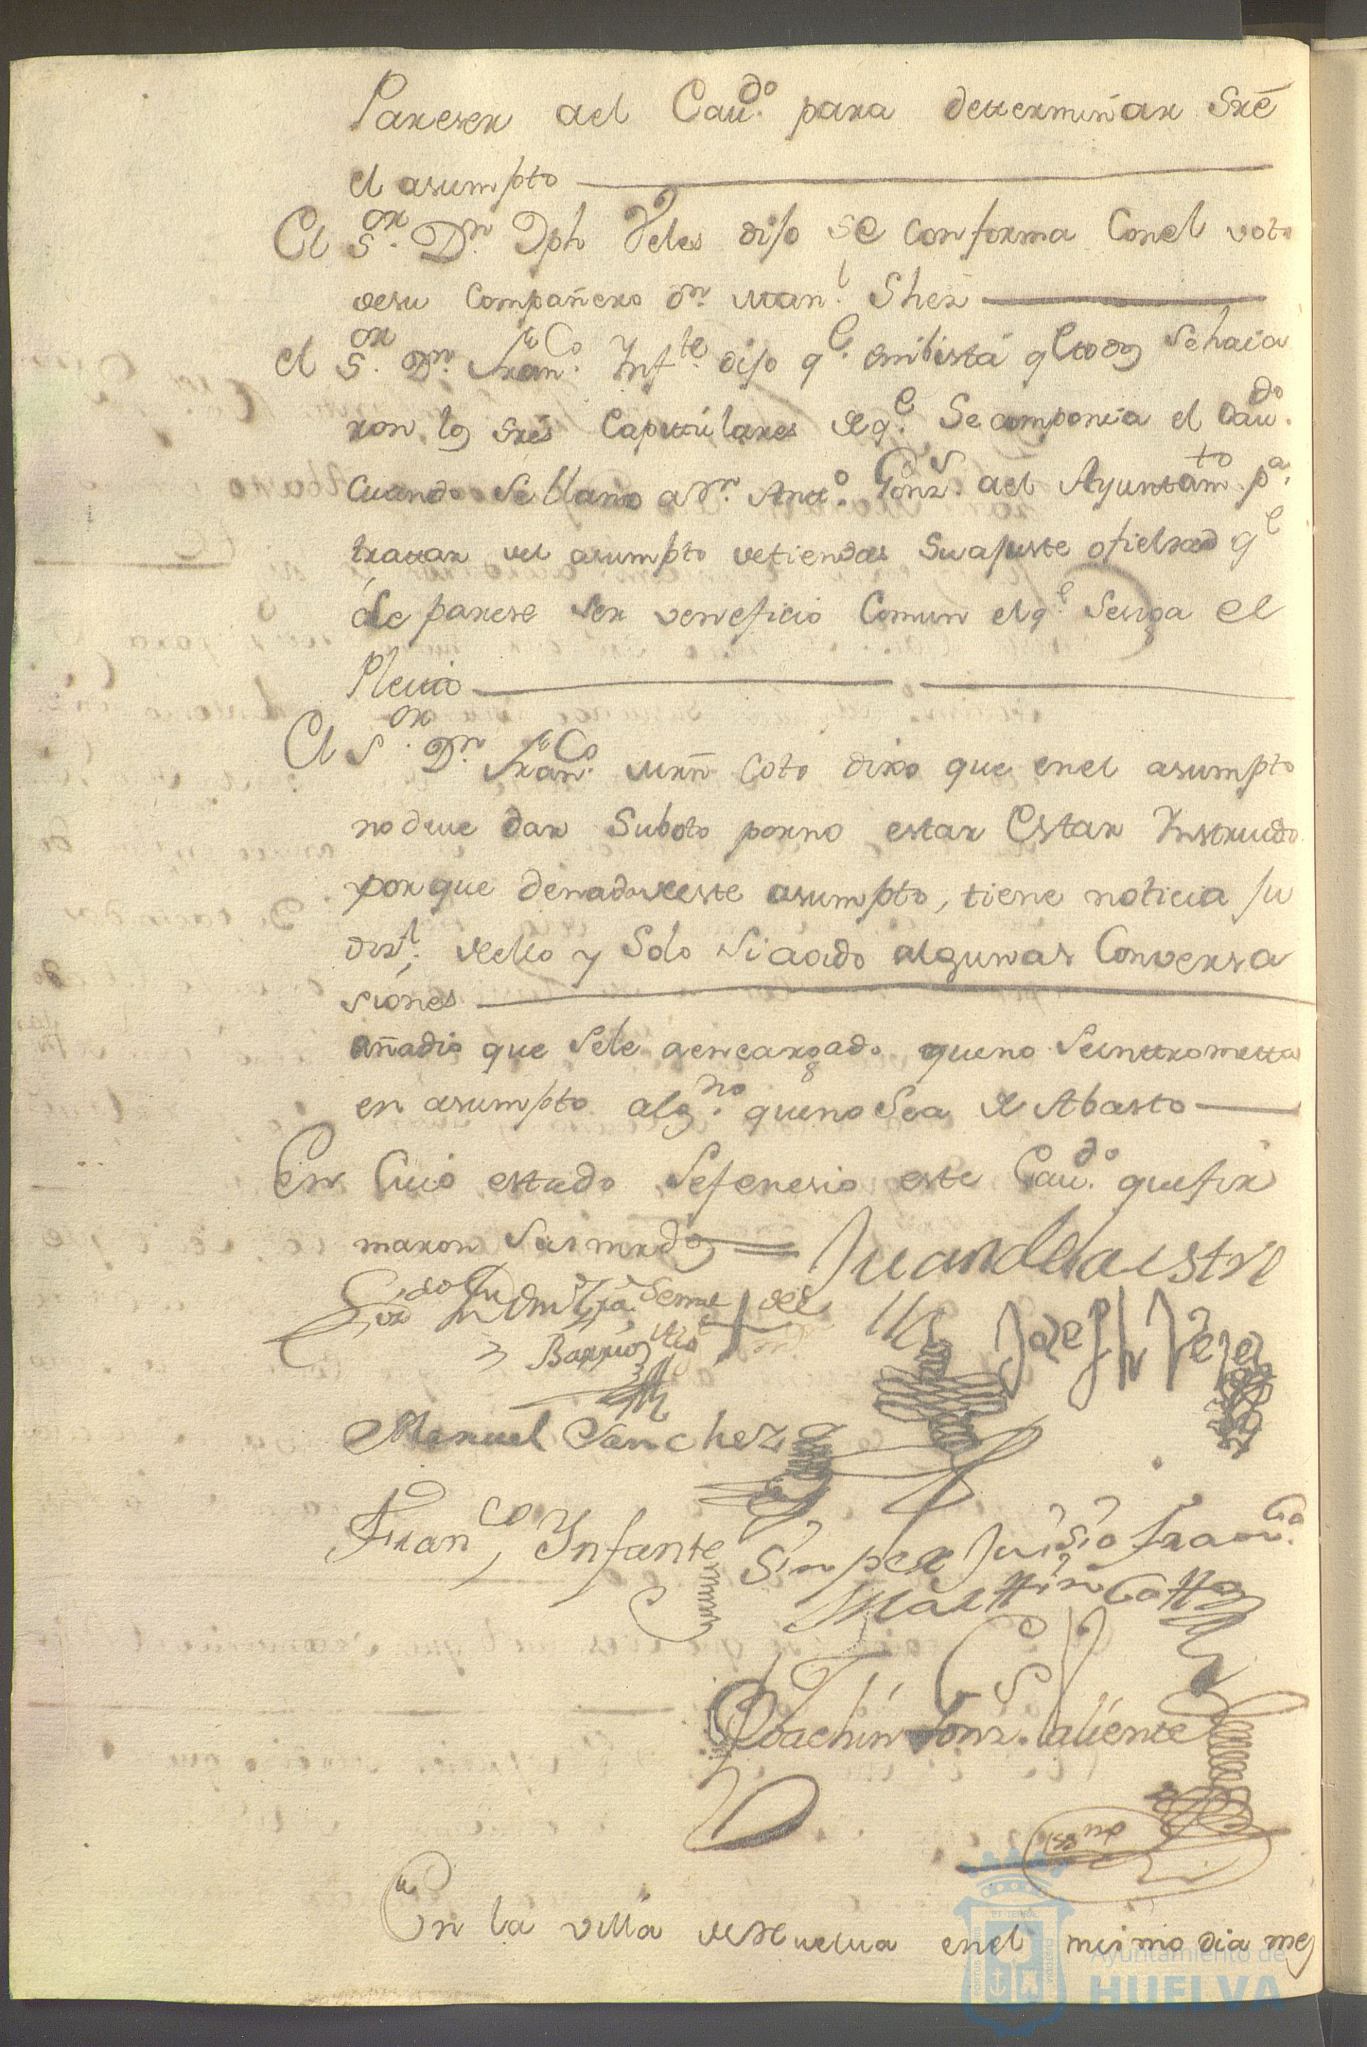 Pareser del Caudo. para detterminar Sre
el asumpto
El Sor. Dn Jph Veles dijo se conforma Conel voto
desu Compañero Dn. Man.l Shez
el Sor. Dn. Franco. Infte. dijo qe. en bista qe todos Sehaia
ron los sres Capitulares de qe. Se componia el Caudo.
Cuando Se llamo a Dn. Antto. Gonzs. del Ayuntamto. pa.
tratar del asumpto detiendas Suajuste ofieldad qe
le parese Ser veneficio Comun elqe. Sesiga el
Pleito
El Sor. Dn. Franco. Mrn Coto dixo que enel asumpto
no deue dar Suboto porno estar Estar Instruido
porque denada deeste asumpto, tiene noticia ju
dixl. dello y Solo Si aoido algunas Conversa
siones
añadio que Sele aencargado queno Seinttrometta
en asumpto algno. queno Sea de Abasto
En Cuio estado Sefenesio este Caudo. quefir
maron Sus mrds
Juan de la
Barrios
Joseph Veles
Manuel Sanchez
Franco, Infante
Sin perjuisio Franco.
Marttin Cotto
Joachin Gonzs. Caliente
Essno
En la villa de Huelua enel mismo dia mes
Ayuntamiento de
HUELVA